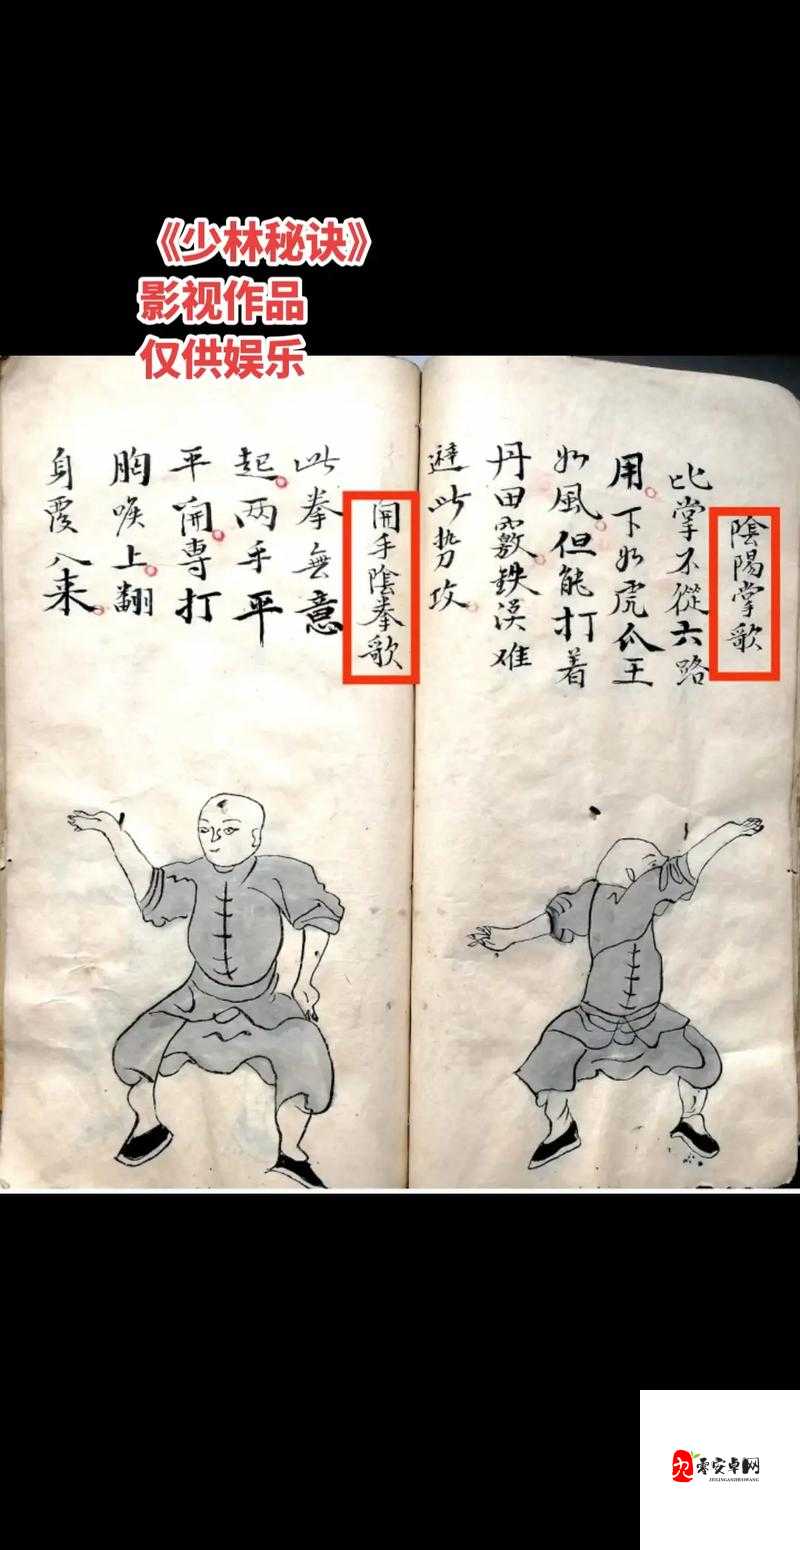 《少林秘诀》
影视作品
仅供娱乐
陰陽掌歌
此掌不從六路
用下如虎爪王
如風但能打着
丹田竅鉄漢难
避此势攻
開手陰拳歌
此拳無意
起两手平
平開專打
胸喉上翻
身覆入来
零安卓网